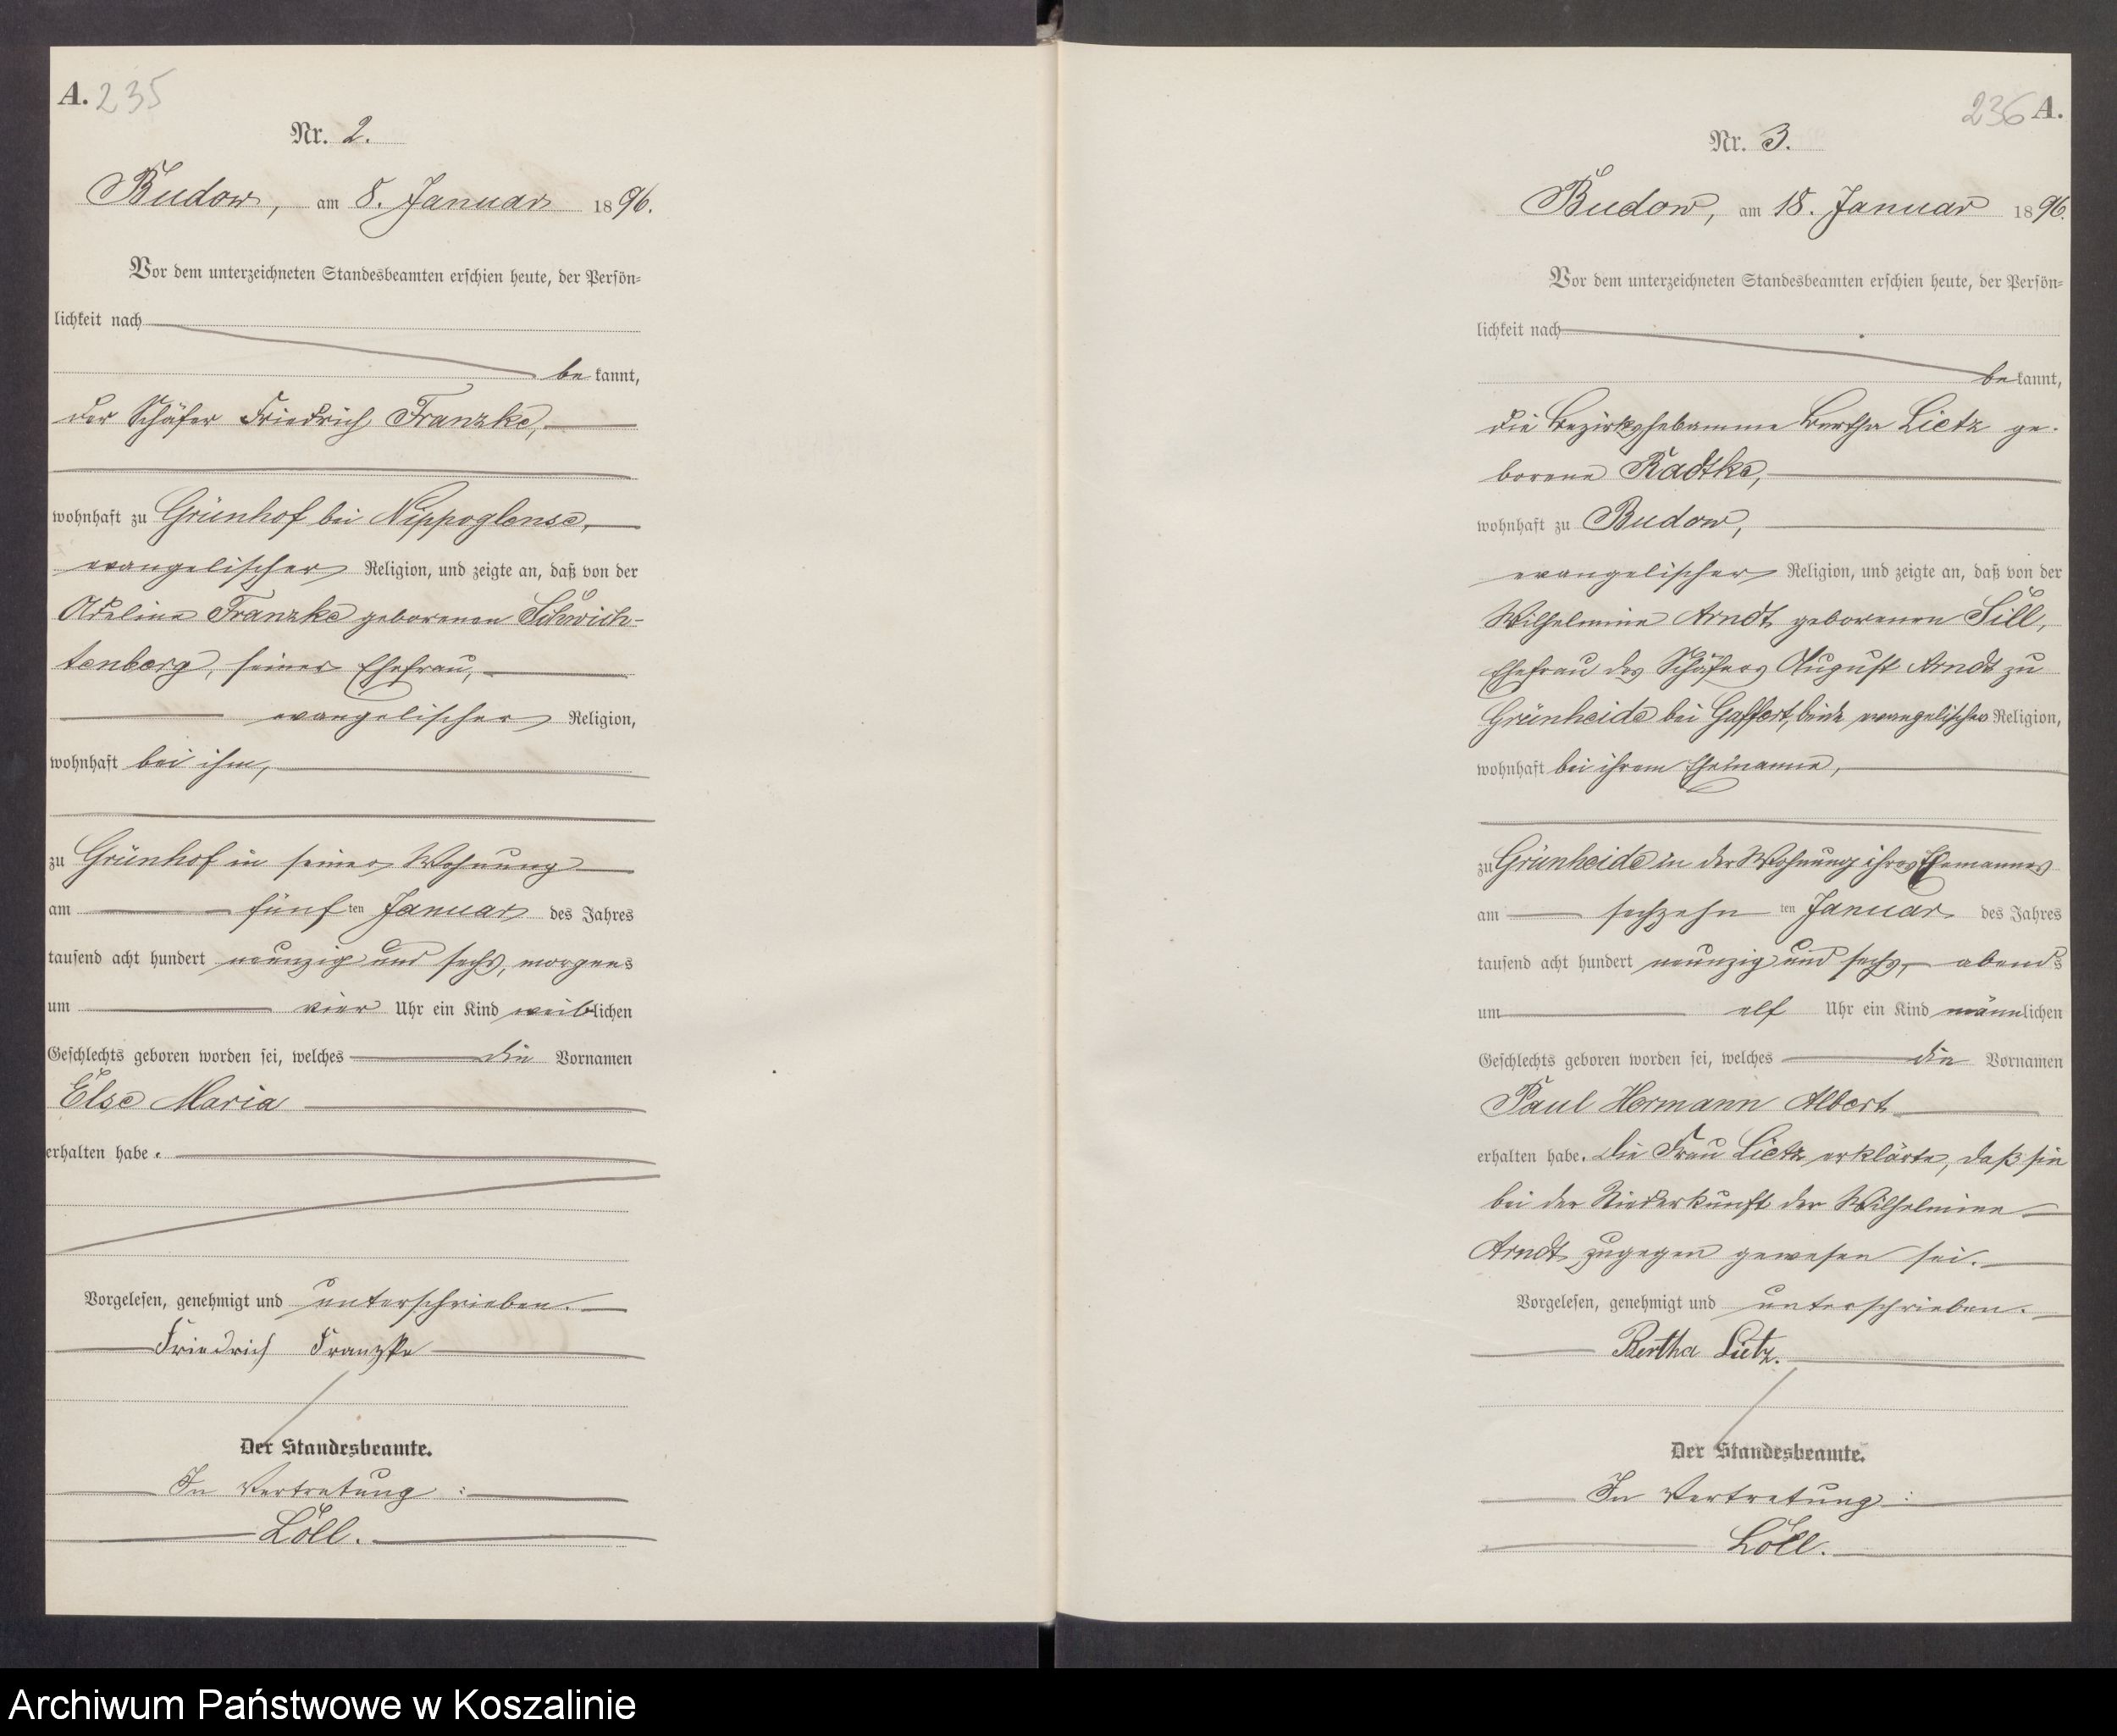 A. 235
Nr. 2.
Budow, am 8. Januar 1896.
Vor dem unterzeichneten Standesbeamten erschien heute, der Persön-
lichkeit nach
be kannt,
der Schäfer Friedrich Franzke,
wohnhaft zu Grünhof bei Nippoglense,
evangelischer Religion, und zeigte an, daß von der
Adeline Franzke geborenen Schwich-
tenberg, seiner Ehefrau,
evangelischer Religion,
wohnhaft bei ihm,
zu Grünhof in seiner Wohnung
am fünf ten Januar des Jahres
tausend acht hundert neunzig und sechs, morgens
um vier Uhr ein Kind weiblichen
Geschlechts geboren worden sei, welches die Vornamen
Else Maria
erhalten habe.
Vorgelesen, genehmigt und unterschrieben.
Friedrich Franzke
Der Standesbeamte.
In Vertretung:
Löll.
236 A.
Nr. 3.
Budow, am 18. Januar 1896.
Vor dem unterzeichneten Standesbeamten erschien heute, der Persön-
lichkeit nach
be kannt,
die Bezirkshebamme Bertha Lietz ge-
borene Radtke,
wohnhaft zu Budow,
evangelischer Religion, und zeigte an, daß von der
Wilhelmine Arndt geborenen Sill,
Ehefrau des Schäfers August Arndt zu
Grünheide bei Gaffert, beide evangelischer Religion,
wohnhaft bei ihrem Ehemanne,
zu Grünheide in der Wohnung ihres Ehemannes
am sechzehn ten Januar des Jahres
tausend acht hundert neunzig und sechs, abends
um elf Uhr ein Kind männlichen
Geschlechts geboren worden sei, welches die Vornamen
Paul Hermann Albert
erhalten habe. Die Frau Lietz erklärte, daß sie
bei der Niederkunft der Wilhelmine
Arndt zugegen gewesen sei.
Vorgelesen, genehmigt und unterschrieben.
Bertha Lietz.
Der Standesbeamte.
In Vertretung:
Löll.
Archiwum Państwowe w Koszalinie